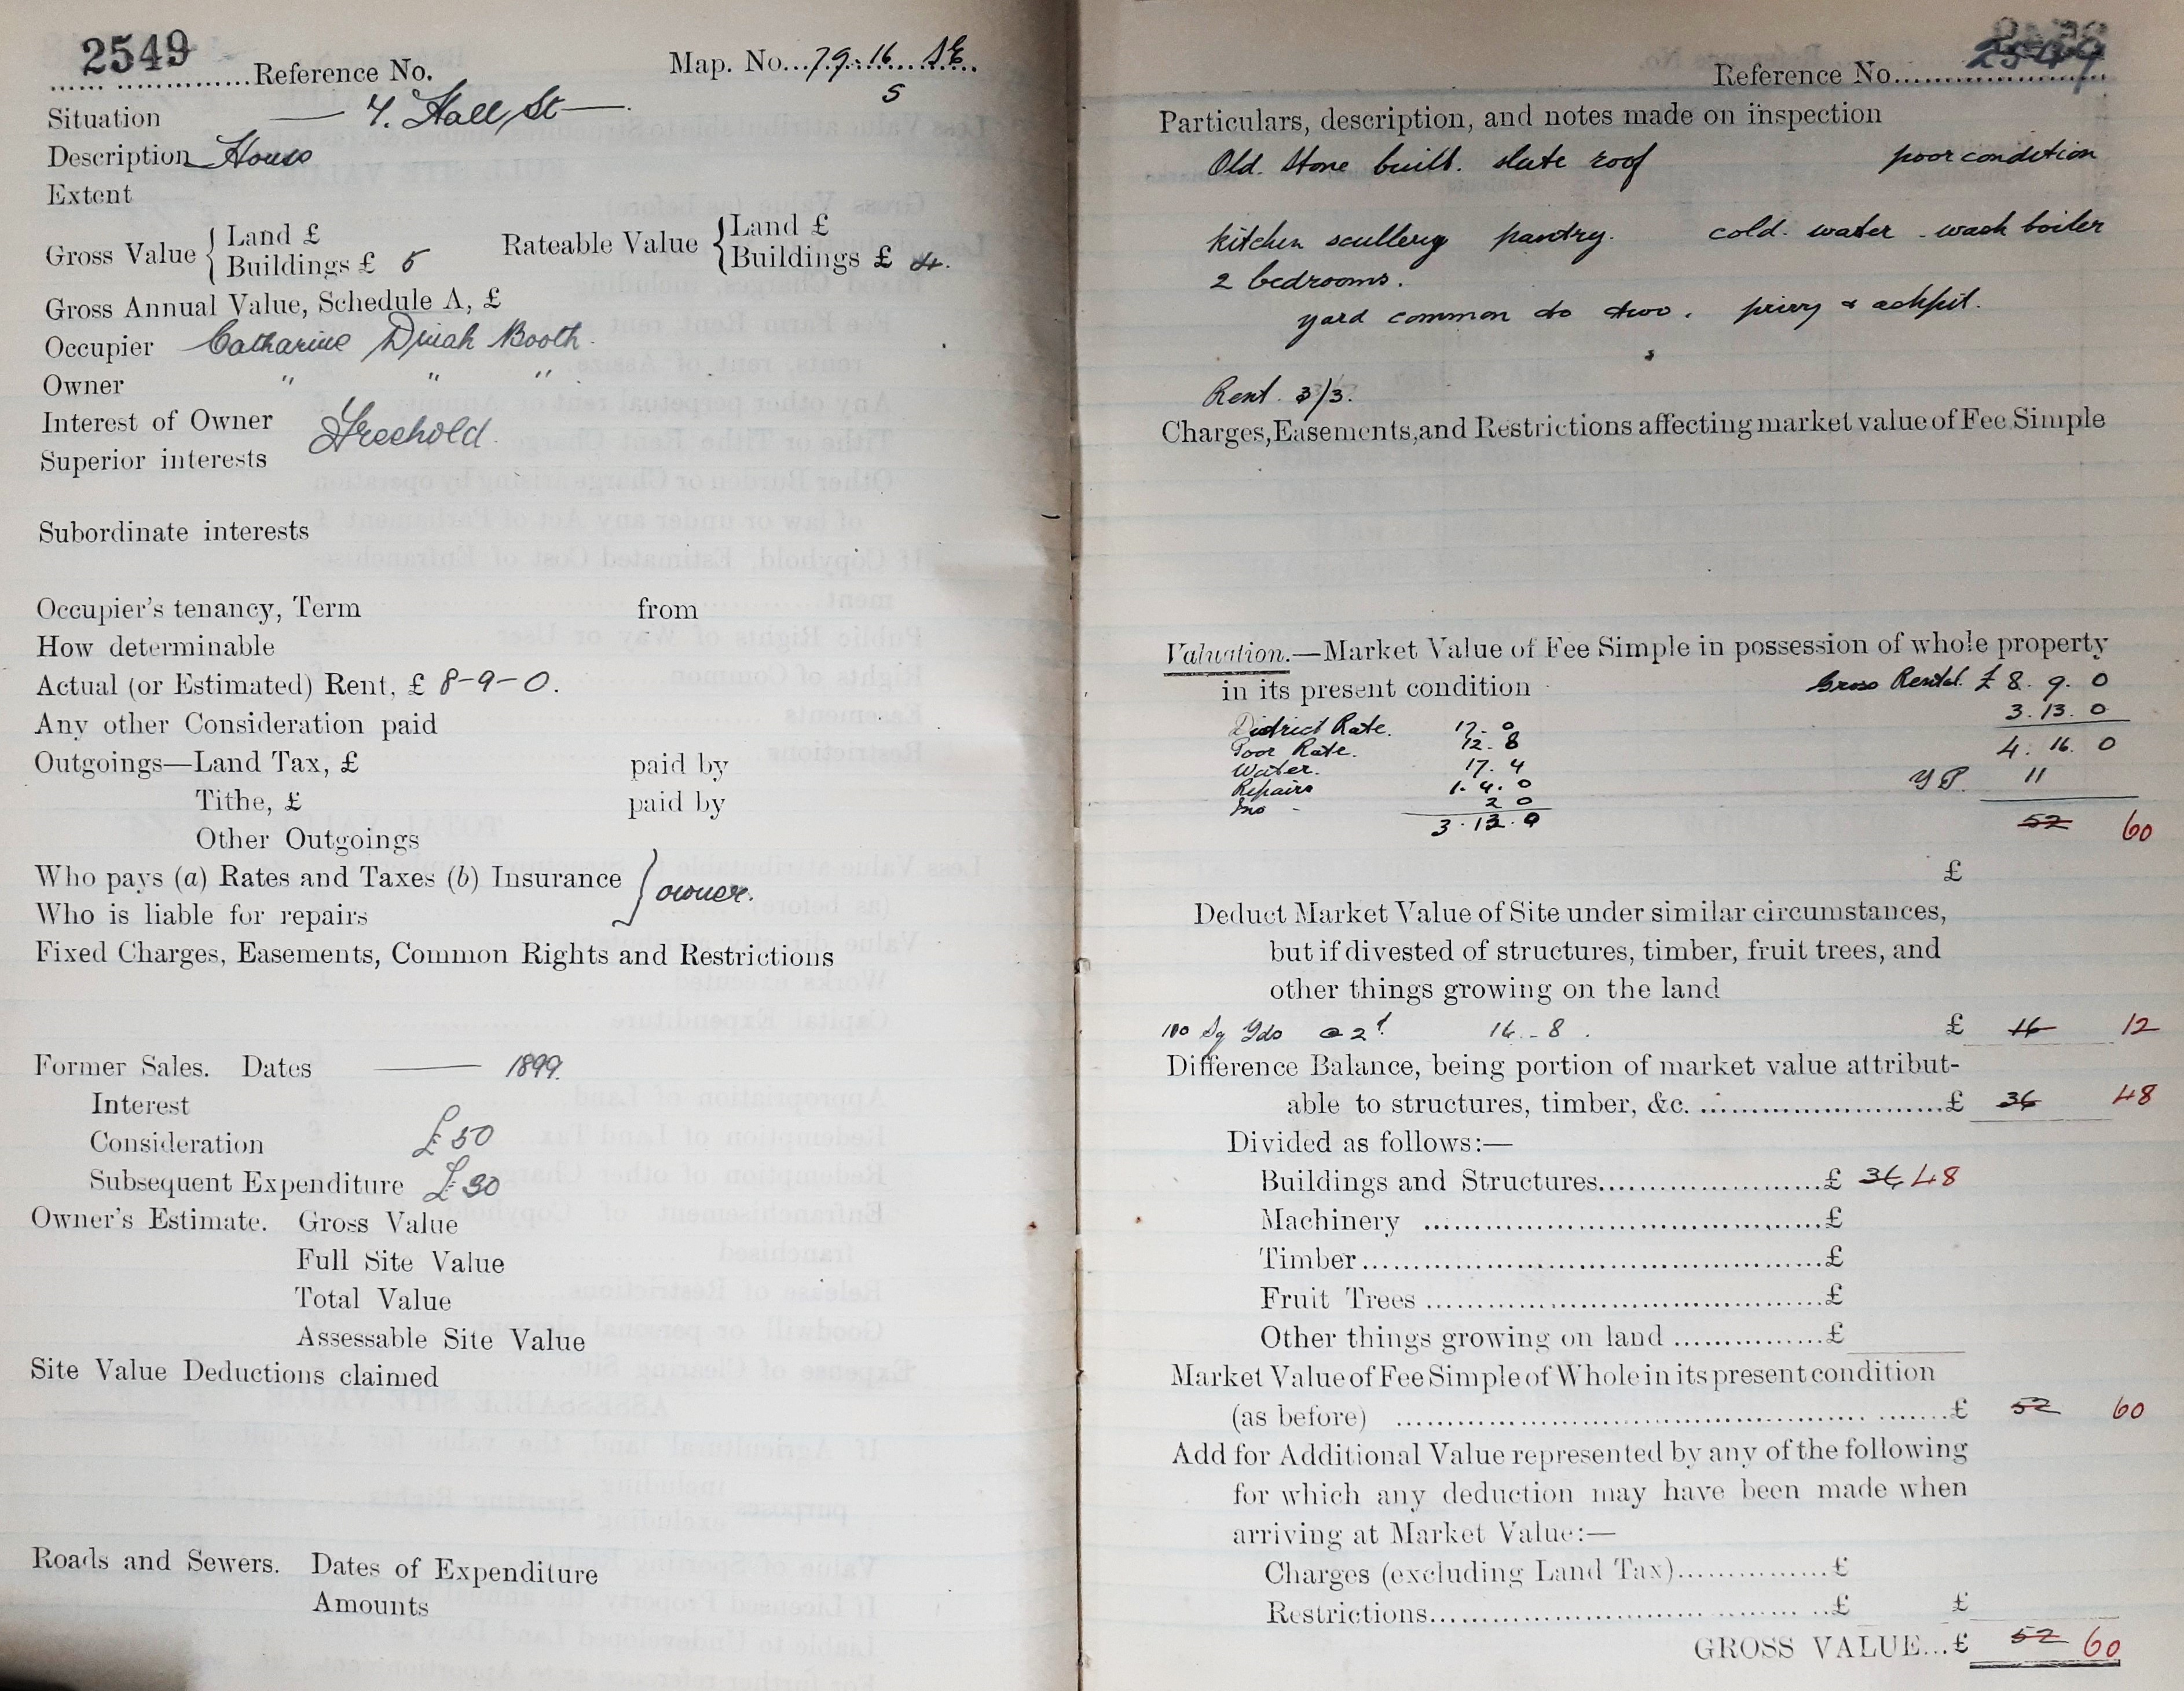 2549 Reference No. Map. No. 79.16 S.E.
5
Situation — 4. Hall St —
Description House
Extent
Gross Value { Land £
Buildings £ 5
Rateable Value { Land £
Buildings £ 4.
Gross Annual Value, Schedule A, £
Occupier Catharine Dinah Booth.
Owner " " "
Interest of Owner Freehold.
Superior interests
Subordinate interests
Occupier's tenancy, Term from
How determinable
Actual (or Estimated) Rent, £ 8-9-0.
Any other Consideration paid
Outgoings—Land Tax, £ paid by
Tithe, £ paid by
Other Outgoings
Who pays (a) Rates and Taxes (b) Insurance } owner.
Who is liable for repairs
Fixed Charges, Easements, Common Rights and Restrictions
Former Sales. Dates — 1899.
Interest
Consideration £50
Subsequent Expenditure £30
Owner's Estimate. Gross Value
Full Site Value
Total Value
Assessable Site Value
Site Value Deductions claimed
Roads and Sewers. Dates of Expenditure
Amounts
Reference No. 2549
Particulars, description, and notes made on inspection
Old. Stone built. slate roof poor condition
kitchen scullery pantry. cold. water . wash boiler
2 bedrooms.
yard common to two. privy & ashpit.
Rent. 3/3.
Charges, Easements, and Restrictions affecting market value of Fee Simple
Valuation.—Market Value of Fee Simple in possession of whole property
in its present condition Gross Rental. £ 8. 9. 0
3. 13. 0
District Rate. 17. 0
4. 16. 0
Poor Rate. 12. 8
Water. 17. 4
Y P. 11
Repairs 1. 4. 0
Ins - 2 0
3. 13. 0
52 60
£
Deduct Market Value of Site under similar circumstances,
but if divested of structures, timber, fruit trees, and
other things growing on the land
100 Sq Yds @ 2d. 16 - 8. £ 16 12
Difference Balance, being portion of market value attribut-
able to structures, timber, &c. £ 36 48
Divided as follows:—
Buildings and Structures £ 36 48
Machinery £
Timber £
Fruit Trees £
Other things growing on land £
Market Value of Fee Simple of Whole in its present condition
(as before) £ 52 60
Add for Additional Value represented by any of the following
for which any deduction may have been made when
arriving at Market Value:—
Charges (excluding Land Tax) £
Restrictions £ £
GROSS VALUE...£ 52 60